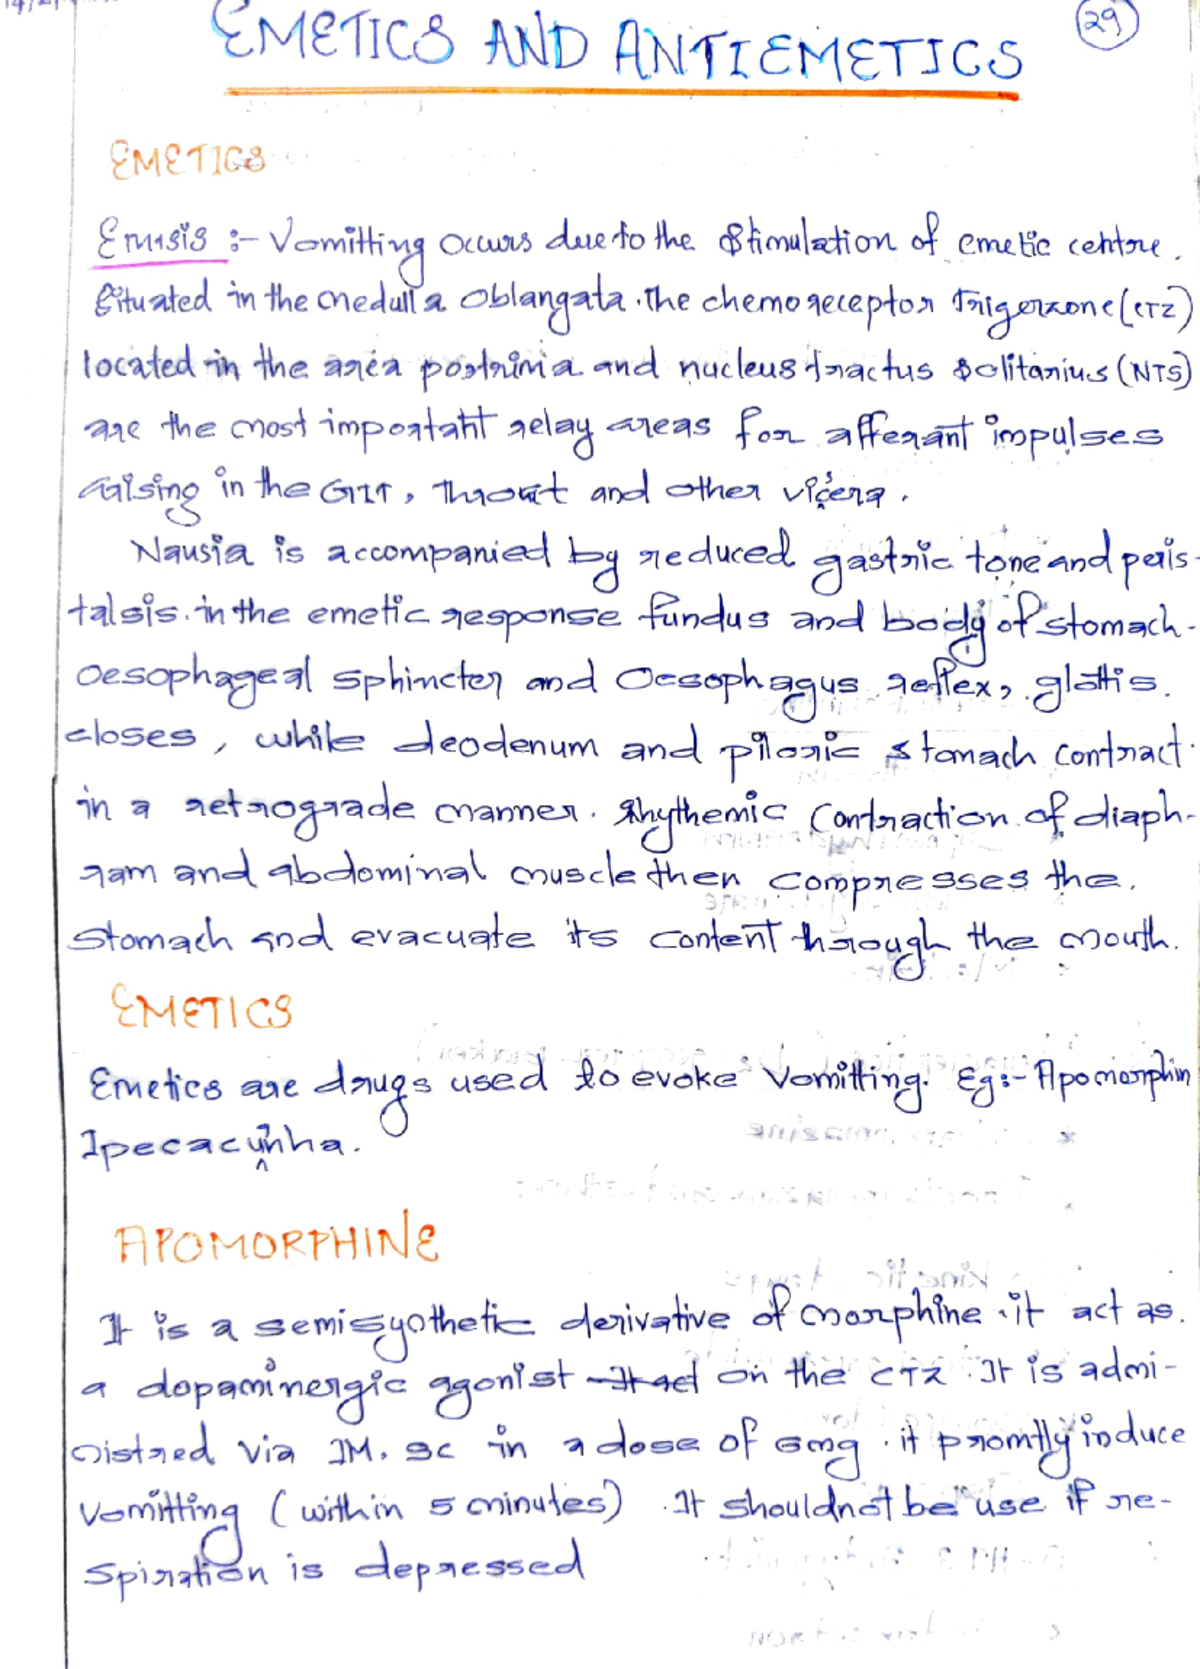 29
EMETICS AND ANTIEMETICS
EMETICS
Emisis :- Vomitting occurs due to the stimulation of emetic centre.
situated in the medulla oblangata. The chemo receptor trigerzone (CTZ)
located in the area postrimia and nucleus tractus solitarius (NTS)
are the most importatnt relay areas for afferant impulses
arising in the GIT, throat and other vicera.
Nausia is accompanied by reduced gastric tone and peris-
talsis. in the emetic response fundus and body of stomach-
oesophageal sphincter and Oesophagus reflex, glottis.
closes, while deodenum and piloric stomach contract.
in a retrograde manner. Rhythemic Contraction of diaph-
ram and abdominal muscle then compresses the.
stomach and evacuate its content through the mouth.
EMETICS
Emetics are drugs used to evoke vomitting. Eg:- Apomorphin
Ipecacunha.
APOMORPHINE
It is a semisyothetic derivative of morphine. it act as.
a dopaminergic agonist It act on the CTZ. It is admi-
nistred via IM, SC in a dose of 6mg. it promtly induce
vomitting (within 5 minutes). It shouldnot be use if re-
spiration is depressed